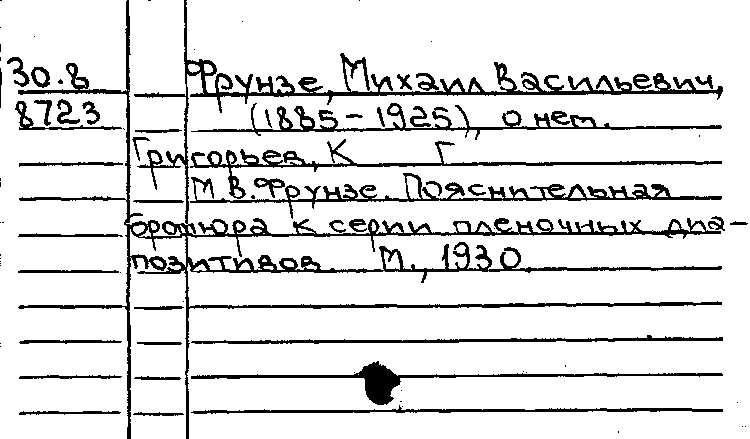 30.8 Фрунзе, Михаил Васильевич,
8723 (1885-1925), о нем.
Григорьев, К Г
М.В.Фрунзе. Пояснительная
брошюра к серии пленочных диа-
позитивов. М., 1930.